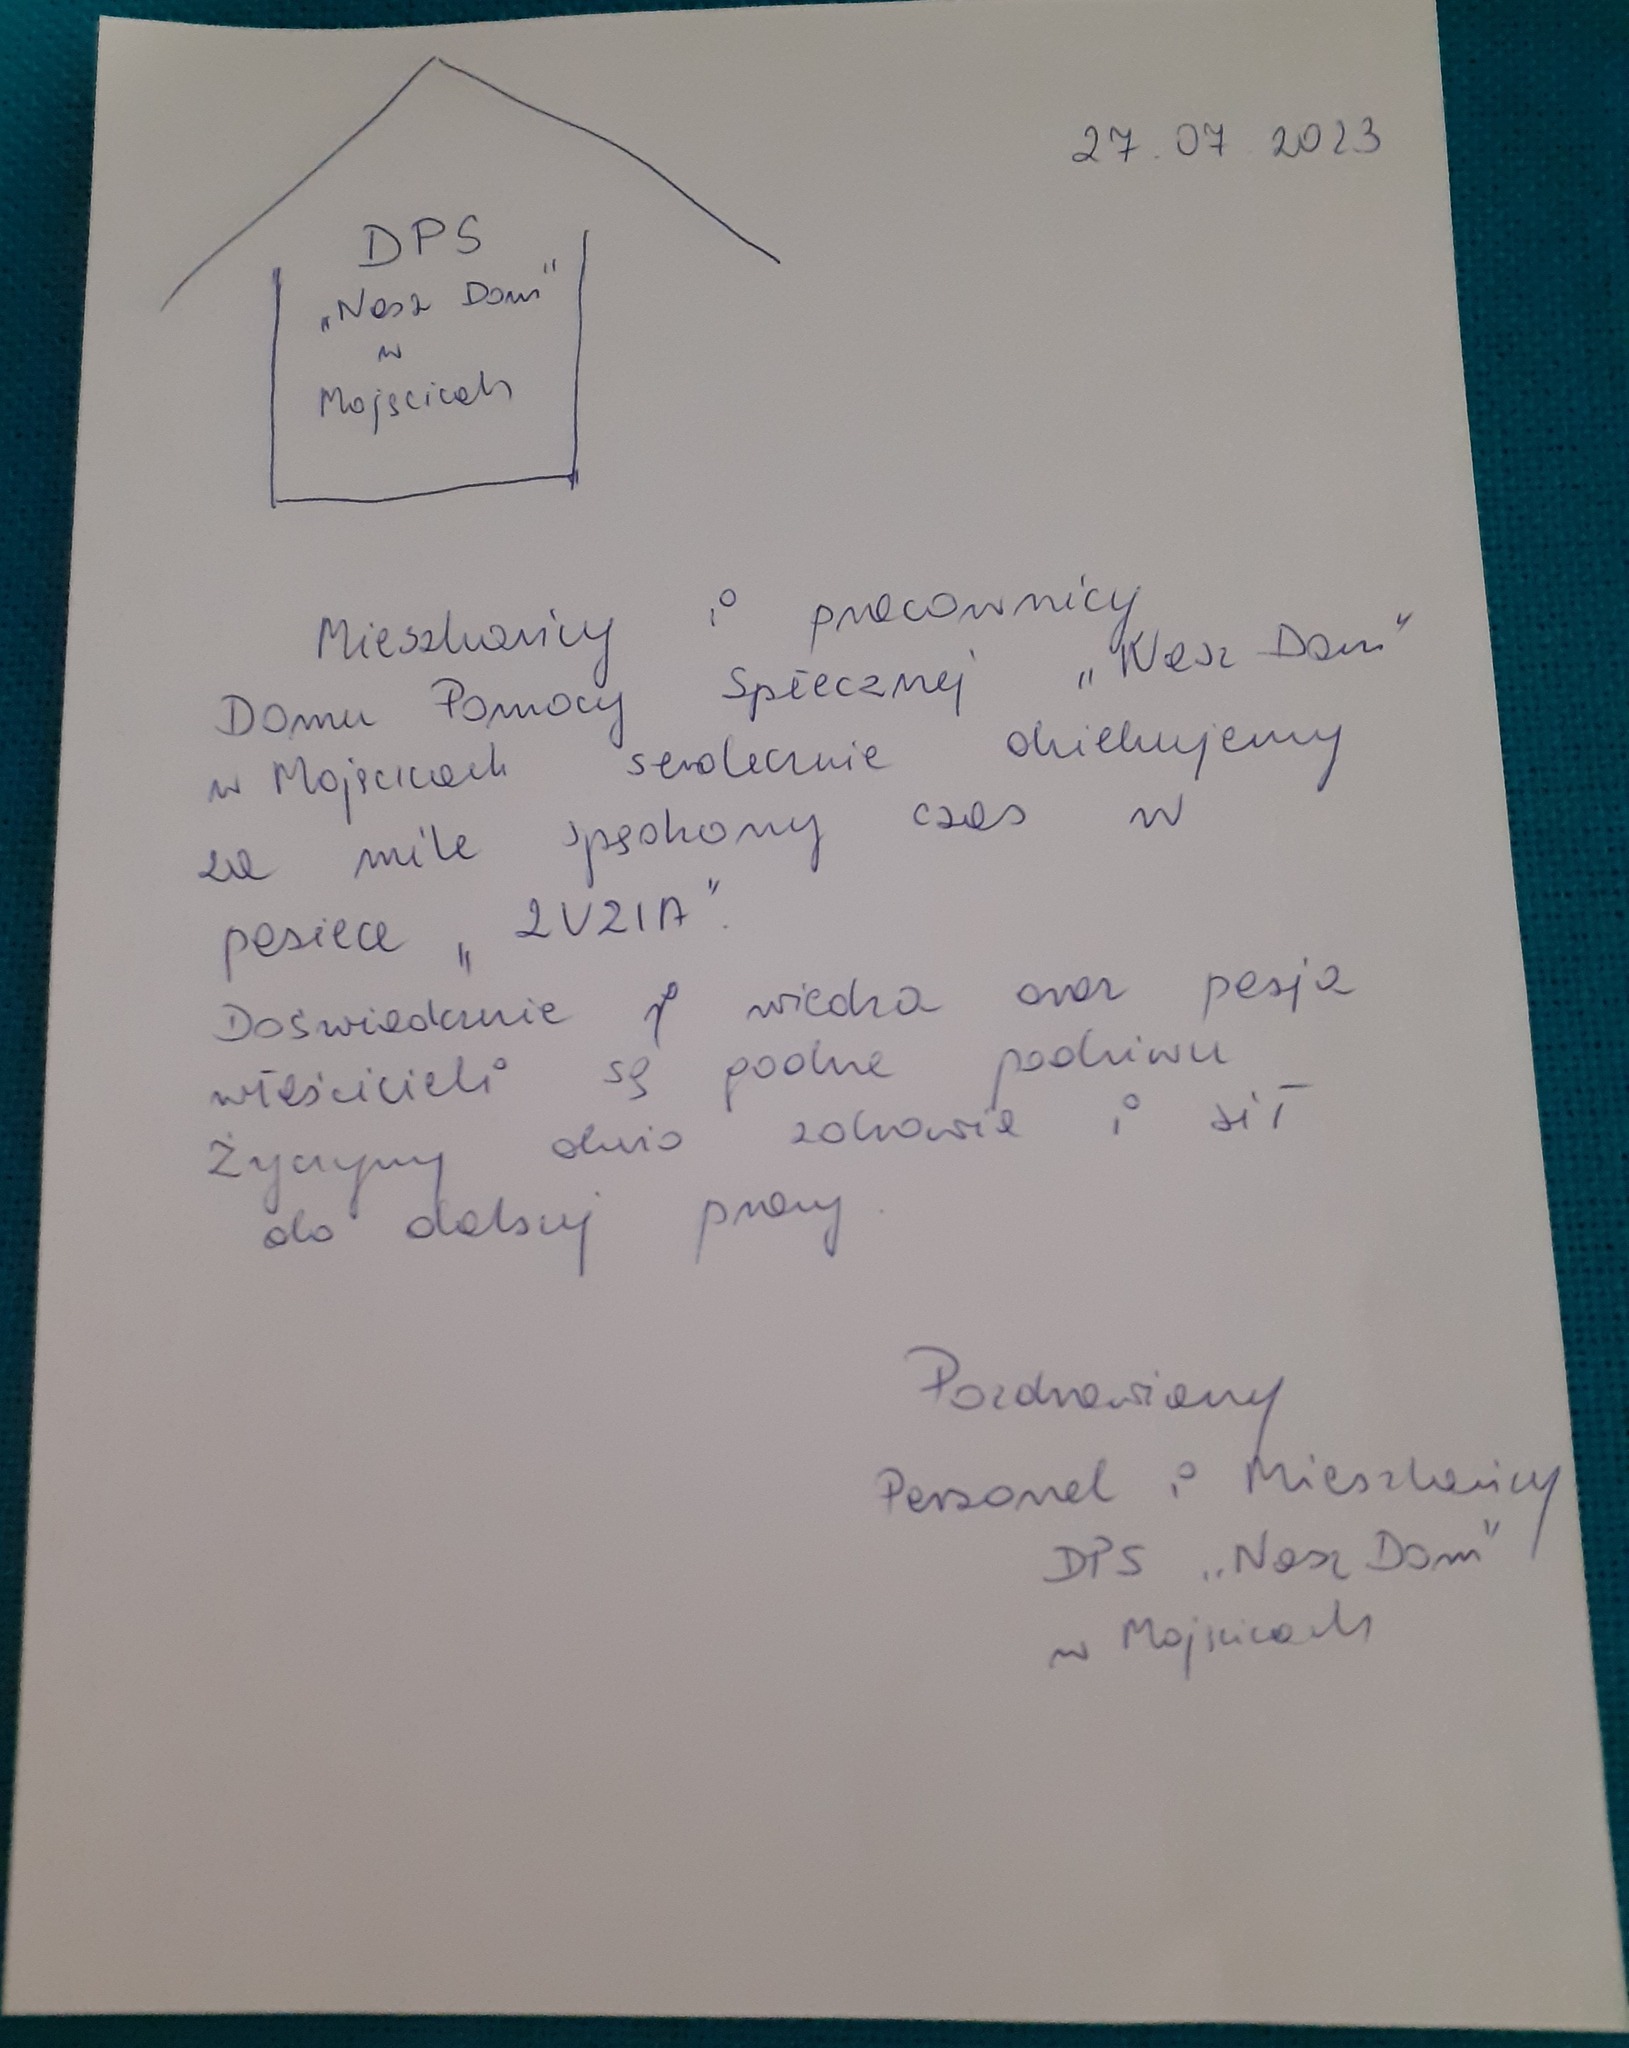 27.07.2023
DPS
„Nasz Dom"
w
Mojścicach
Mieszkańcy i pracownicy
Domu Pomocy Społecznej „Nasz Dom"
w Mojścicach serdecznie dziękujemy
za mile spędzony czas w
pasiece „ZUZIA".
Doświadczenie i wiedza oraz pasja
właścicieli są godne podziwu
Życzymy dużo zdrowia i sił
do dalszej pracy.
Pozdrawiamy
Personel i Mieszkańcy
DPS „Nasz Dom"
w Mojścicach